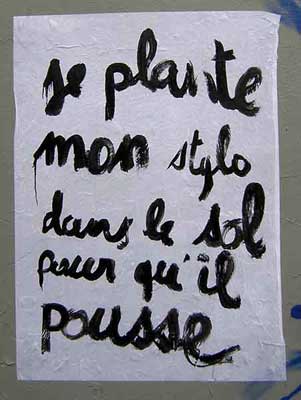 je plante
mon stylo
dans le sol
pour qu'il
pousse